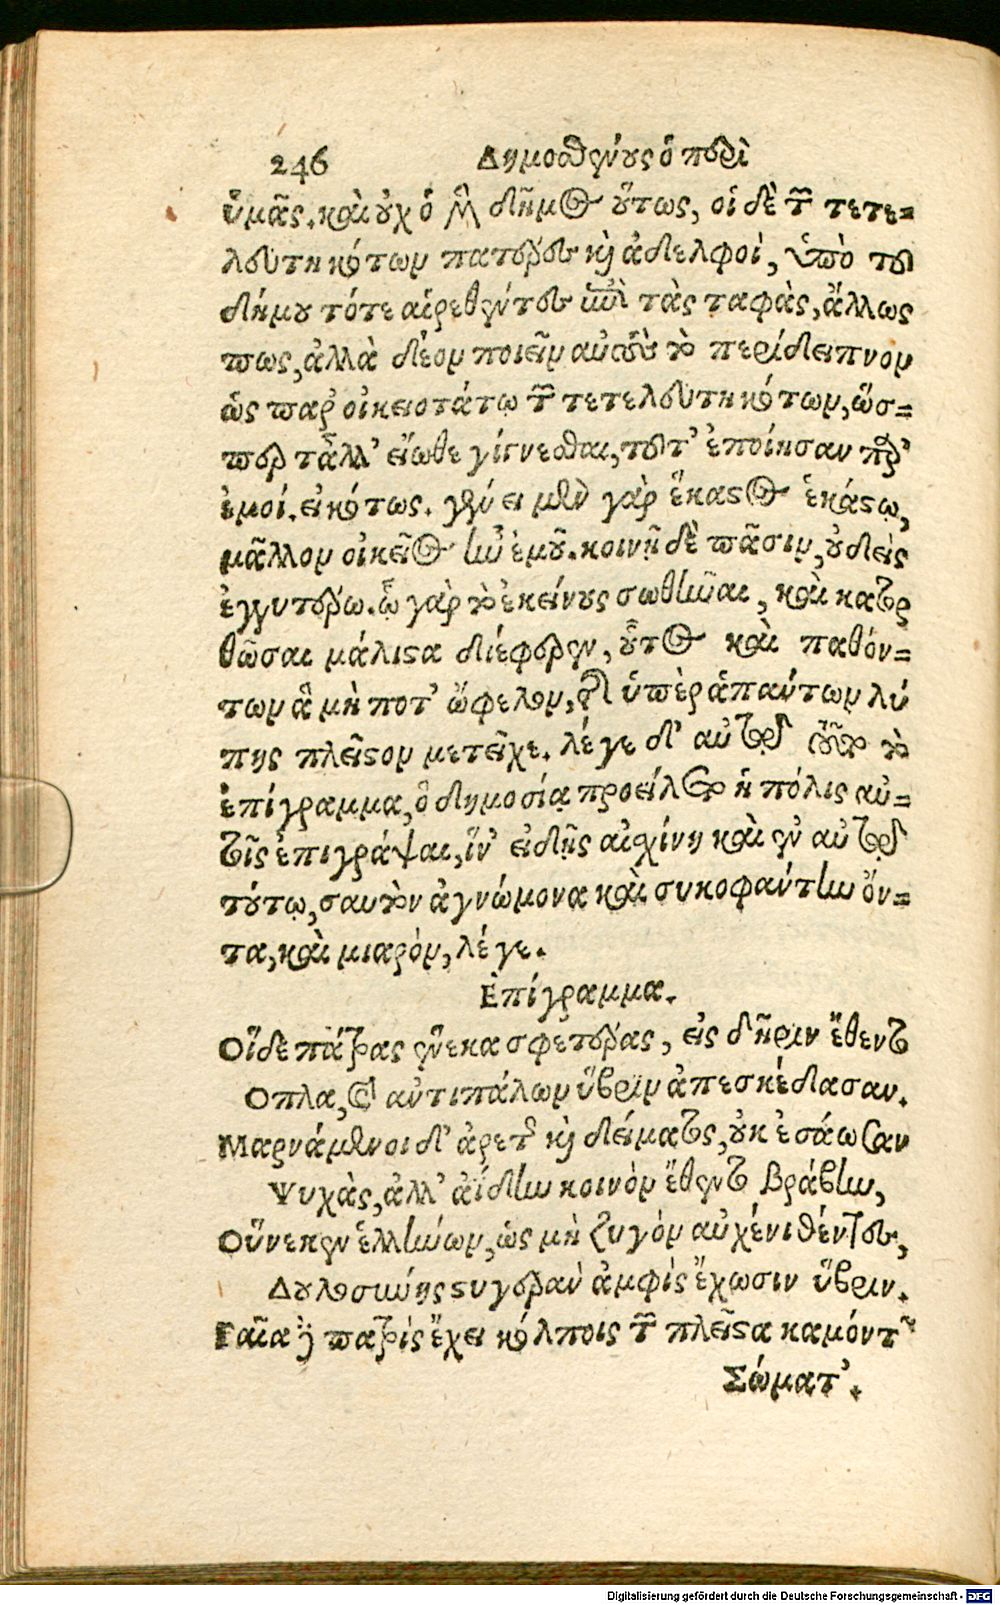 246 Δημοσθένους ὁ περὶ
ὑμᾶς. καὶ οὐχ ὁ μὲν δῆμος οὕτως, οἱ δὲ τῶν τετε-
λευτηκότων πατέρες καὶ ἀδελφοὶ, ὑπὸ τοῦ
δήμου τότε αἱρεθέντες ἐπὶ τὰς ταφὰς, ἄλλως
πως, ἀλλὰ δέον ποιεῖν αὐτοὺς τὸ περίδειπνον
ὡς παρ' οἰκειοτάτῳ τῶν τετελευτηκότων, ὥσ-
περ τἆλλ' εἴωθε γίγνεσθαι, τοῦτ' ἐποίησαν παρ'
ἐμοί. εἰκότως. γένει μὲν γὰρ ἕκαστος ἑκάστῳ,
μᾶλλον οἰκεῖος ἦν ἐμοῦ. κοινῇ δὲ πᾶσιν, οὐδεὶς
ἐγγυτέρω. ᾧ γὰρ τὸ ἐκείνους σωθῆναι, καὶ κατορ
θῶσαι μάλιστα διέφερεν, οὗτος καὶ παθόν-
των ἃ μὴ ποτ' ὤφελον, τῆς ὑπὲρ ἁπάντων λύ
πης πλεῖστον μετεῖχε. λέγε δ' αὐτῷ τουτὶ τὸ
ἐπίγραμμα, ὃ δημοσίᾳ προείλετο ἡ πόλις αὐ-
τοῖς ἐπιγράψαι, ἵν' εἰδῇς αἰσχίνη καὶ ἐν αὐτῷ
τούτῳ, σαυτὸν ἀγνώμονα καὶ συκοφάντην ὄν-
τα, καὶ μιαρὸν, λέγε.
Ἐπίγραμμα.
Οἵδε πάτρας ἕνεκα σφετέρας, εἰς δῆριν ἔθεντο
Οπλα, καὶ ἀντιπάλων ὕβριν ἀπεσκέδασαν.
Μαρνάμενοι δ' ἀρετῆς καὶ δείματος, οὐκ ἐσάωσαν
Ψυχὰς, ἀλλ' ἀΐδην κοινὸν ἔθεντο βράβην,
Οὕνεκεν ἑλλήνων, ὡς μὴ ζυγὸν αὐχένι θέντες,
Δουλοσύνης στυγερὰν ἀμφὶς ἔχωσιν ὕβριν.
Γαῖα δὲ πατρὶς ἔχει κόλποις τῶν πλεῖστα καμόντων
Σώματ'.
Digitalisierung gefördert durch die Deutsche Forschungsgemeinschaft - DFG